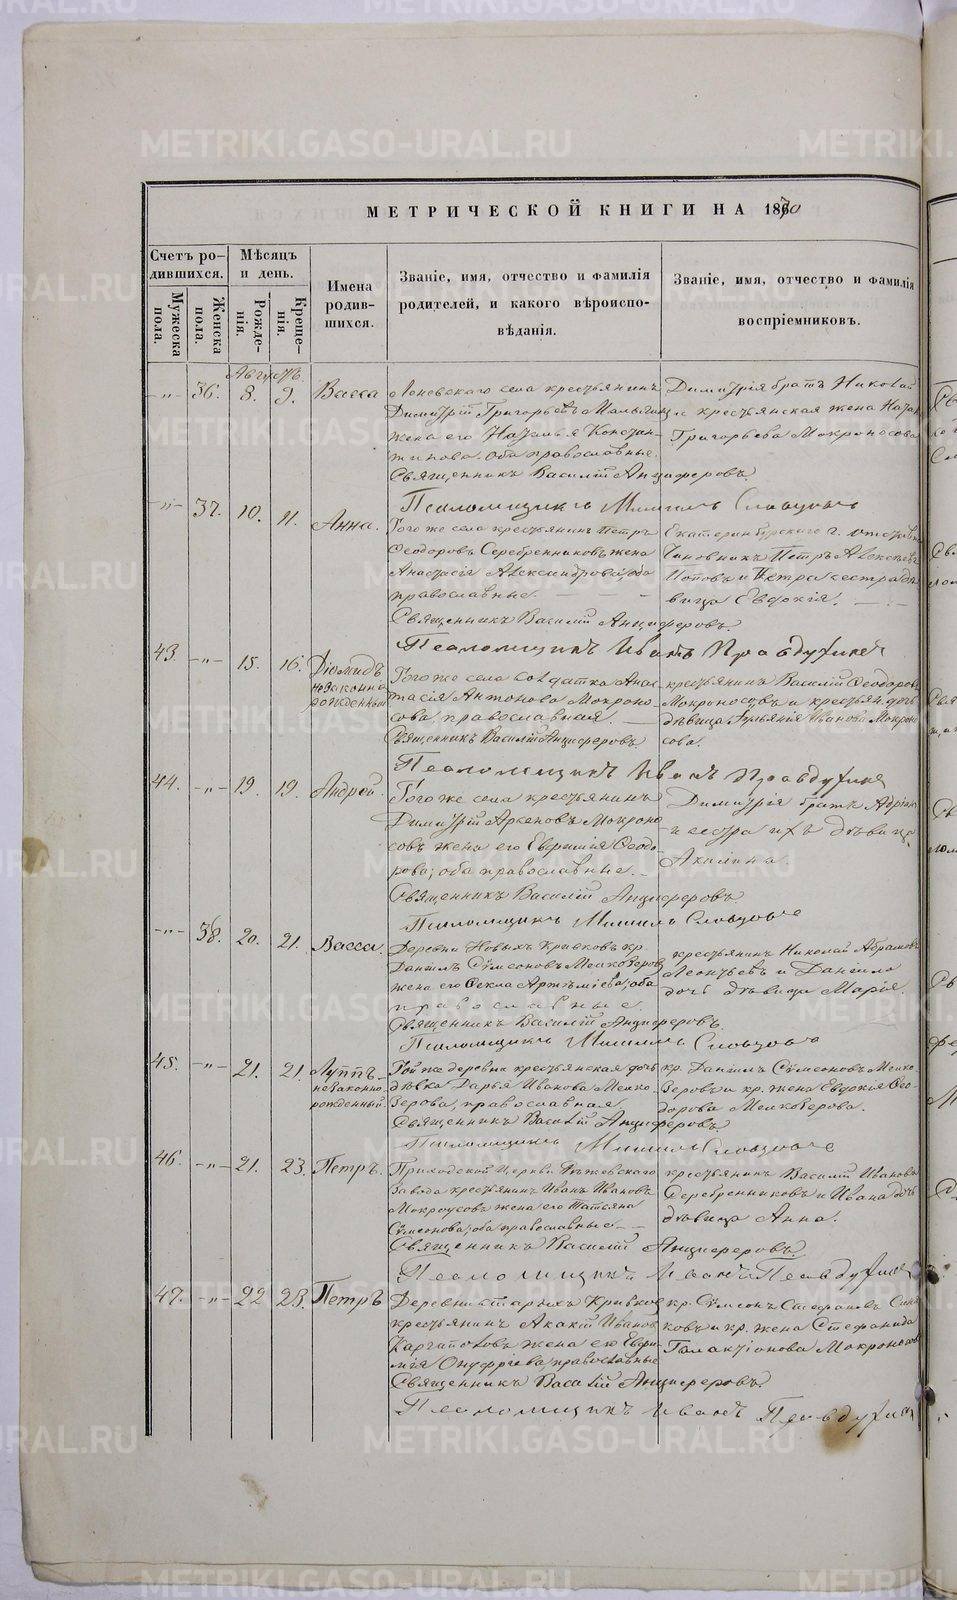 МЕТРИЧЕСКОЙ КНИГИ НА 1870
Счетъ родившихся.
Мужеска пола.
Женска пола.
Мѣсяцъ и день.
Рожденія.
Крещенія.
Имена родившихся.
Званіе, имя, отчество и фамилія родителей, и какого вѣроисповѣданія.
Званіе, имя, отчество и фамилія воспріемниковъ.
Августъ
-"- 36. 8. 9. Васса
села крестьянинъ
Димитрій Григорьевъ
жена его Наталья Констан-
тинова, оба православные.
Священникъ Василій Анциферовъ.
Димитрія братъ Николай
и крестьянская жена
Григорьева Мокроносова
Псаломщикъ Михаилъ Словцовъ
-"- 37. 10. 11. Анна.
Того же села крестьянинъ Петръ
Ѳеодоровъ Серебренниковъ, жена
Анастасія Александрова, оба
православные.
Священникъ Василій Анциферовъ.
Екатеринбургскаго г. отставн.
чиновникъ Петръ Алексѣевъ
Поповъ и Петра сестра дѣ-
вица Евдокія.
Псаломщикъ Иванъ
43. -"- 15. 16. Діомидъ
незаконно
рожденный
Того же села солдатка Анас-
тасія Антонова Мокроно-
сова, православная.
Священникъ Василій Анциферовъ
крестьянинъ Василій Ѳеодоровъ
Мокроносовъ и крестьян. дочь
дѣвица Ульянія Иванова Мокроно
сова.
Псаломщикъ Иванъ
44. -"- 19. 19. Андрей.
Того же села крестьянинъ
Димитрій Арсеновъ Мокроно
совъ жена его Евфимія Ѳеодо-
рова; оба православные.
Священникъ Василій Анциферовъ
Димитрія братъ Адріанъ
и сестра ихъ дѣвица
Акилина.
Псаломщикъ Михаилъ Словцовъ
-"- 38. 20. 21. Васса.
Деревни Новыхъ Кривковъ кр.
Даніилъ Сѵмеоновъ Мелкозеровъ
жена его Ѳекла Артеміева; оба
православные
Священникъ Василій Анциферовъ.
крестьянинъ Николай Абрамовъ
Леонтьевъ и Даніила
дочь дѣвица Марія.
Псаломщикъ Михаилъ Словцовъ
45. -"- 21. 21. Луппъ
незаконно
рожденный.
Той же деревни крестьянская дочь
дѣвка Дарья Иванова Мелко-
зерова, православная.
Священникъ Василій Анциферовъ
кр. Даніилъ Сѵмеоновъ Мелко-
зеровъ и кр. жена Евдокія Ѳео-
дорова Мелкозерова.
Псаломщикъ Михаилъ Словцовъ
46. -"- 21. 23. Петръ.
Приходской Церкви Режевскаго
завода крестьянинъ Иванъ Ивановъ
Мокроусовъ жена его Татьяна
Сѵмеонова; оба православные
Священникъ Василій Анциферовъ.
крестьянинъ Василій Ивановъ
Серебренниковъ и Ивана дочь
дѣвица Анна.
Псаломщикъ Иванъ
47. -"- 22 23. Петръ
Деревни Старыхъ Кривковъ
крестьянинъ Акакій Ивановъ
Каргаполовъ жена его Евфи-
мія Онуфріева, православные
Священникъ Василій Анциферовъ.
кр. Сѵмеонъ Стефановъ
ковъ и кр. жена Стефанида
Галактіонова Мокроносова
Псаломщикъ Иванъ
METRIKI.GASO-URAL.RU